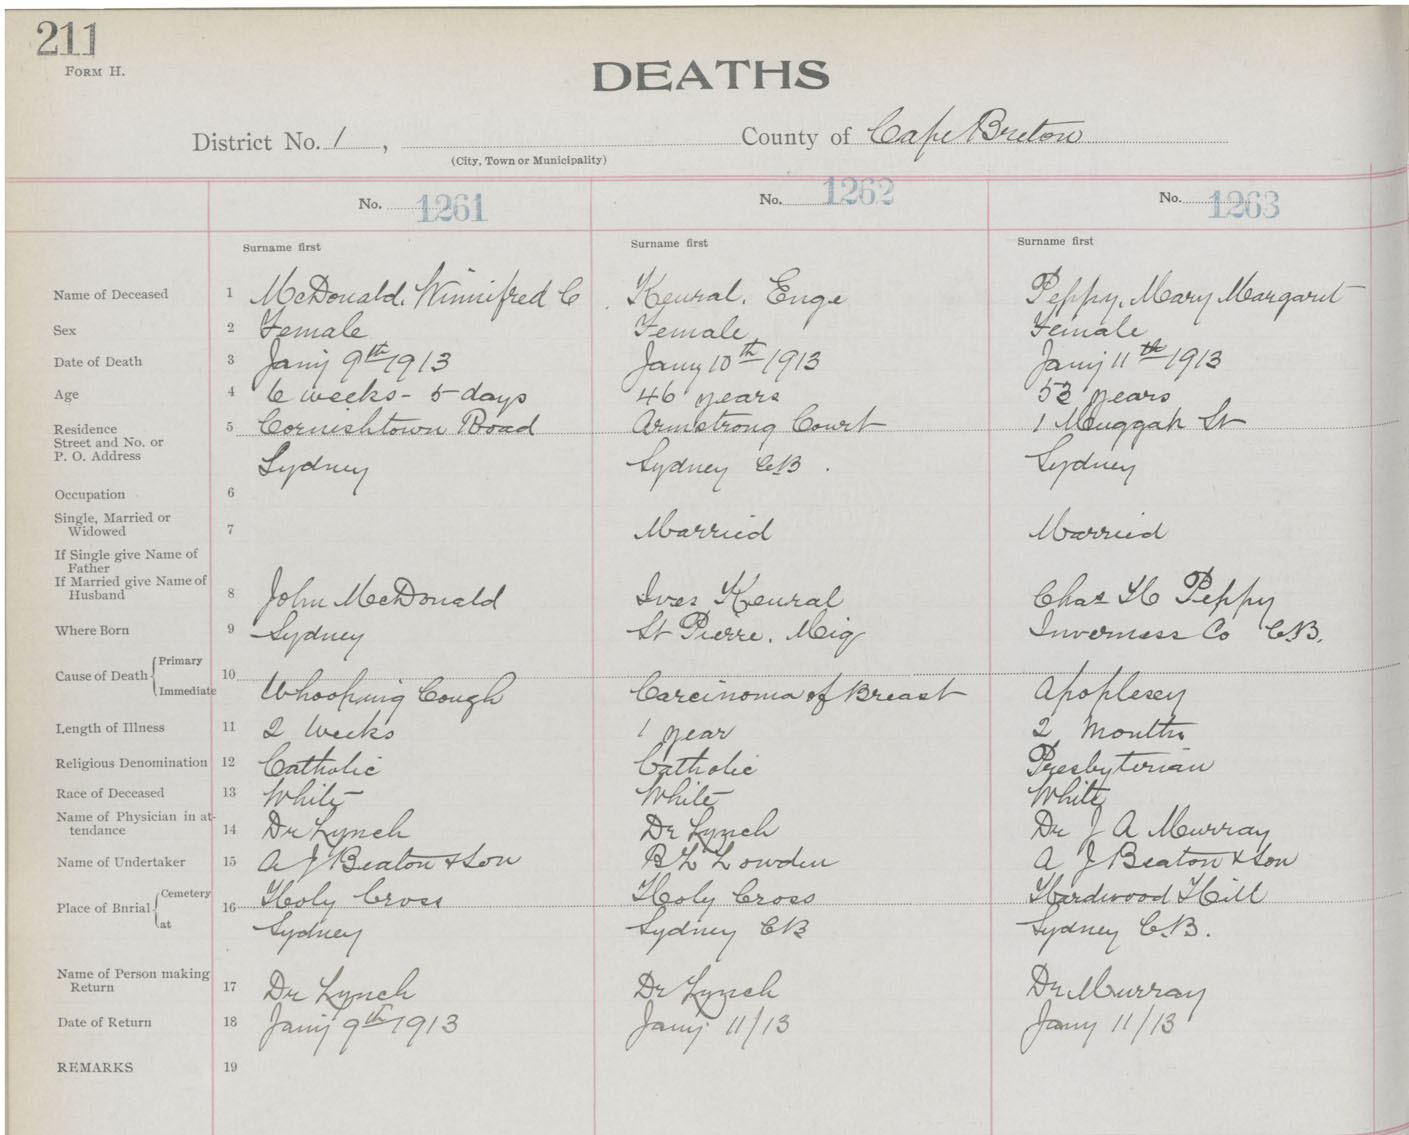 211
FORM H.
DEATHS
District No. 1 , County of Cape Breton
(City, Town or Municipality)
No. 1261 No. 1262 No. 1263
Surname first Surname first Surname first
Name of Deceased 1 McDonald, Winnifred C Keural, Enge Peppy, Mary Margaret
Sex 2 Female Female Female
Date of Death 3 Jany 9th 1913 Jany 10th 1913 Jany 11th 1913
Age 4 6 weeks - 5 days 46 years 53 years
Residence 5 Cornishtown Road Armstrong Court 1 Muggah St
Street and No. or
P. O. Address Sydney Sydney CB. Sydney
Occupation 6
Single, Married or
Widowed 7 Married Married
If Single give Name of
Father
If Married give Name of
Husband 8 John McDonald Ives Keural Chas H Peppy
Where Born 9 Sydney St Pierre, Miq Inverness Co C.B.
Cause of Death Primary 10
Immediate Whooping Cough Carcinoma of Breast Apoplexy
Length of Illness 11 2 weeks 1 year 2 months
Religious Denomination 12 Catholic Catholic Presbyterian
Race of Deceased 13 White White White
Name of Physician in at-
tendance 14 Dr Lynch Dr Lynch Dr J A Murray
Name of Undertaker 15 A J Beaton & Son Lowden A J Beaton & Son
Place of Bnrial Cemetery 16 Holy Cross Holy Cross Hardwood Hill
at Sydney Sydney CB Sydney C.B.
Name of Person making
Return 17 Dr Lynch Dr Lynch Dr Murray
Date of Return 18 Jany 9th 1913 Jany 11/13 Jany 11/13
REMARKS 19